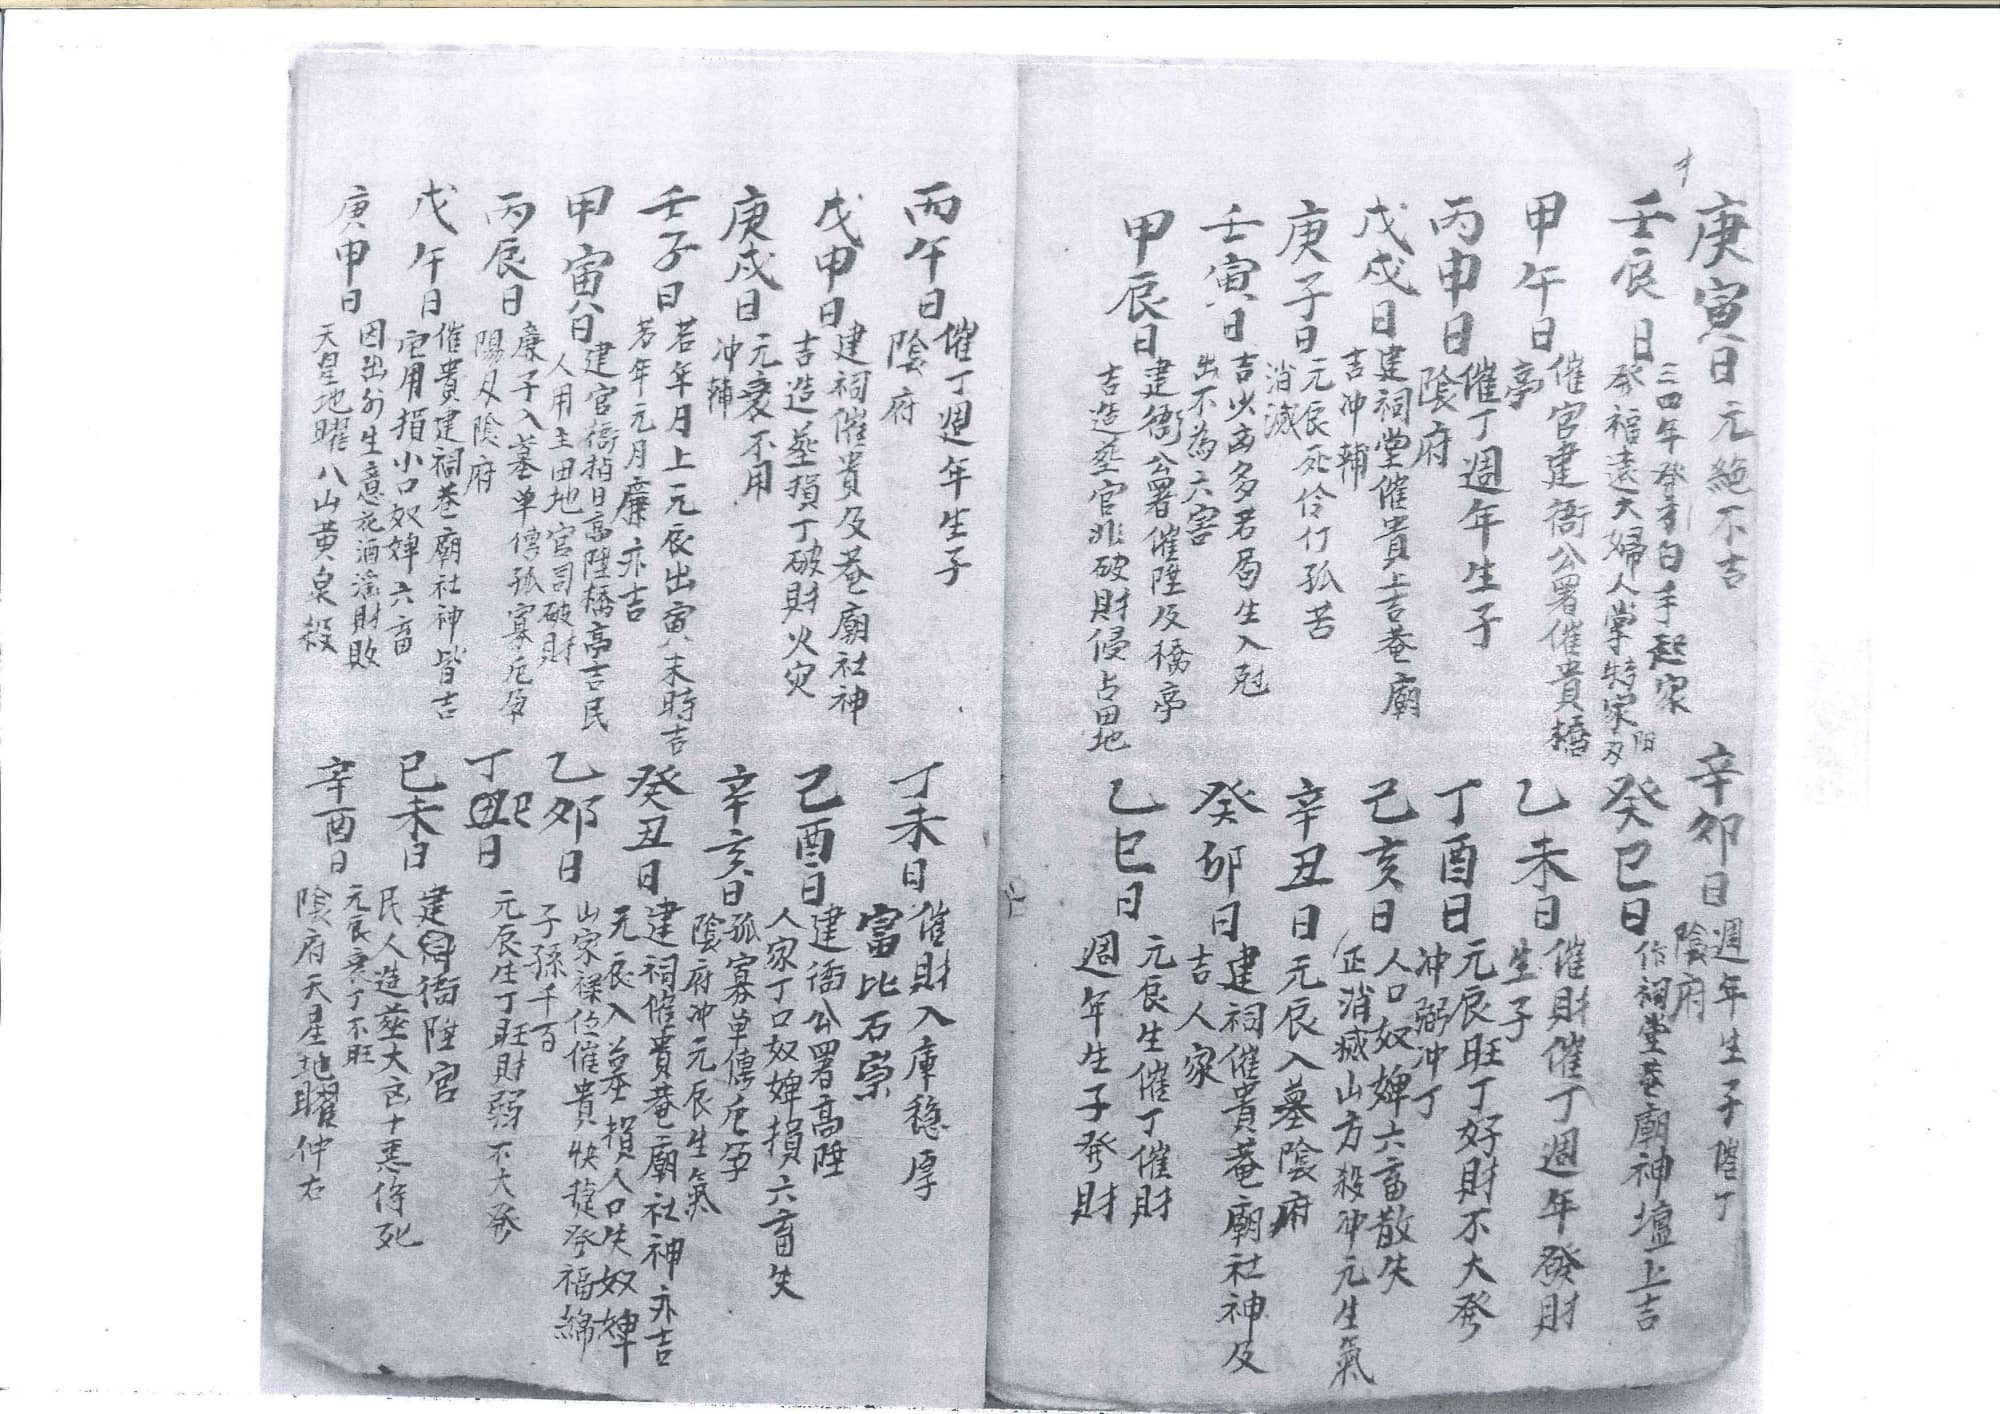 庚寅日元絕不吉
辛卯日週年生子催丁
陰府
壬辰日三四年發秀白手起家
發福遠大婦人掌特家陽刃
癸巳日作祠堂菴廟神壇上吉
甲午日催官建衙公署催貴橋
亭
乙未日催財催丁週年發財
生子
丙申日催丁週年生子
陰府
丁酉日元辰旺丁好財不大發
冲弼冲丁
戊戌日建祠堂催貴上吉菴廟
吉冲輔
己亥日人口奴婢六畜散失
正消滅山方殺冲元生氣
庚子日元辰死伶仃孤苦
消滅
辛丑日元辰入墓陰府
壬寅日吉少凶多若局生入尅
出不為六害
癸卯日建祠催貴菴廟社神及
吉人家
甲辰日建衙公署催陞及橋亭
吉造塟官非破財侵占田地
乙巳日元辰生催丁催財
週年生子發財
丙午日催丁週年生子
陰府
丁未日催財入庫穩厚
富比石崇
戊申日建祠催貴及菴廟社神
吉造塟損丁破財火灾
己酉日建衙公署高陞
人家丁口奴婢損六畜失
庚戌日元衰不用
冲輔
辛亥日孤寡單傳危孕
陰府冲元辰生氣
壬子日若年月上元辰出寅未時吉
若年元月廉亦吉
癸丑日建祠催貴菴廟社神亦吉
元辰入墓損人口失奴婢
甲寅日建官衙指日高陞橋亭吉民
人用主田地官司破財
乙卯日山家祿位催貴快捷發福綿
子孫千百
丙辰日廉子入墓单傳孤寡危孕
陽刃陰府
丁巳日元辰生丁旺財弱不大發
戊午日催貴建祠菴廟社神皆吉
宅用損小口奴婢六畜
己未日建衙陞官
民人造塟大凶十惡侍死
庚申日因出外生意花酒淫財敗
天皇地曜八山黄泉殺
辛酉日元辰衰丁不旺
陰府天星地曜仲右